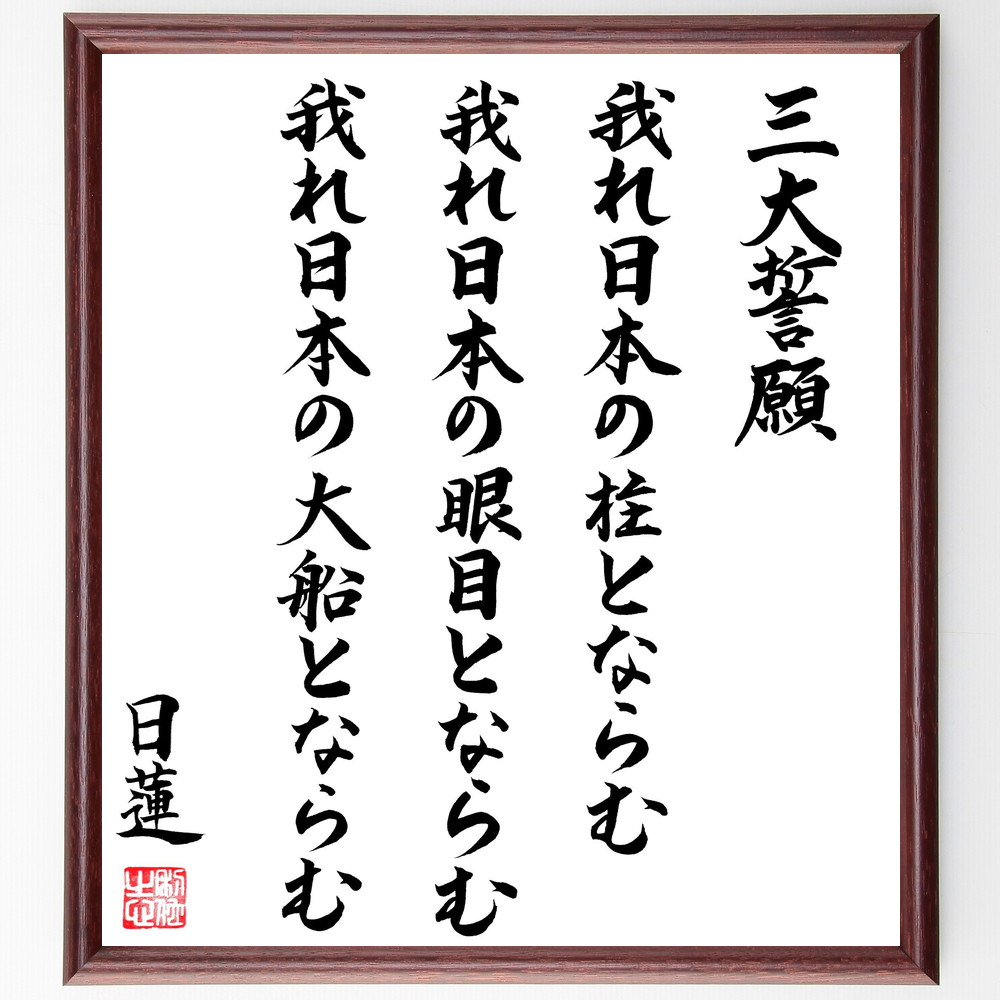 三大誓願
我れ日本の柱とならむ
我れ日本の眼目とならむ
我れ日本の大船とならむ
日蓮